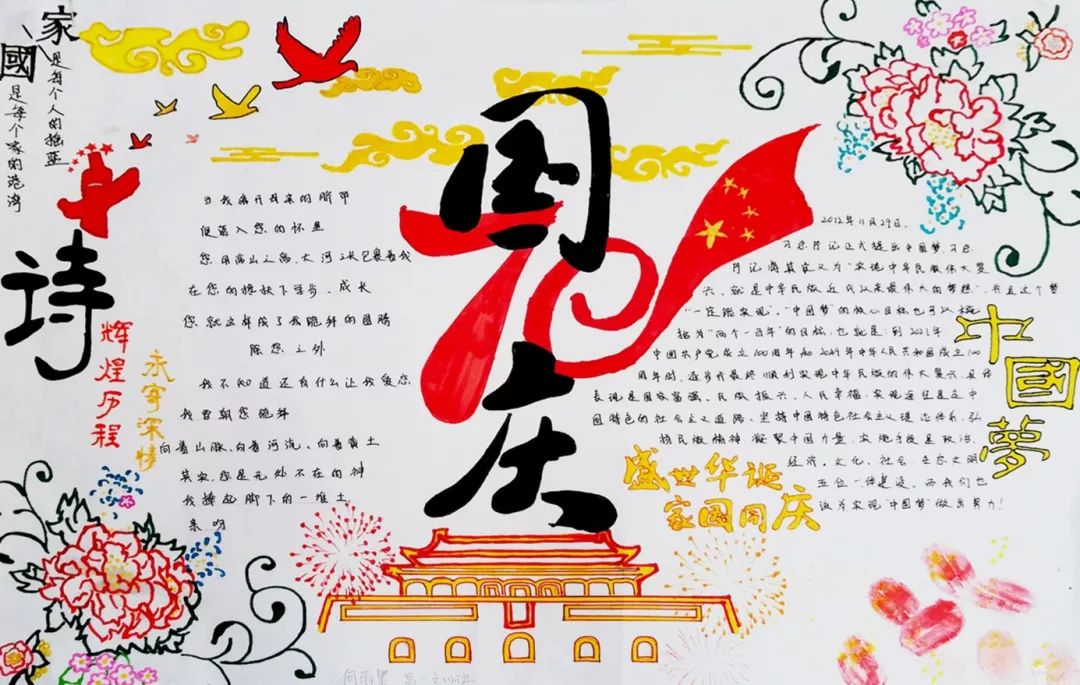 家
是每个人的摇蓝
國
是每个家的港湾
诗
辉煌历程
永寄深情
当我离开母亲的脐带
便落入您的怀里
您用高山之高、大河之长包裹着我
在您的搀扶下学步、成长
您就这样成了我跪拜的图腾
除您之外
我不知道还有什么让我爱您
我曾朝您跪拜
向着山脉、向着河流、向着黄土
其实,您是无处不在的神
我捧起脚下的一堆土
亲吻
国庆
70
2012年11月29日,
习总书记正式提出中国梦,习总
书记将其定义为"实现中华民族伟大复
兴,就是中华民族近代以来最伟大的梦想",并且这个梦
"一定能实现","中国梦"的核心目标也可以概
括为"两个一百年"的目标,也就是:到2021年
中国共产党成立100周年和2049年中华人民共和国成立100
周年时,逐步并最终顺利实现中华民族的伟大复兴,具体
表现是国家富强、民族振兴、人民幸福,实现途径是走中
国特色的社会主义道路、坚持中国特色社会主义理论体系、弘
扬民族精神、凝聚中国力量,实施手段是政治、
经济、文化、社会、生态文明
五位一体建设。而我们也
该为实现"中国梦"做出努力!
中國夢
盛世华诞
家国同庆
高一
班